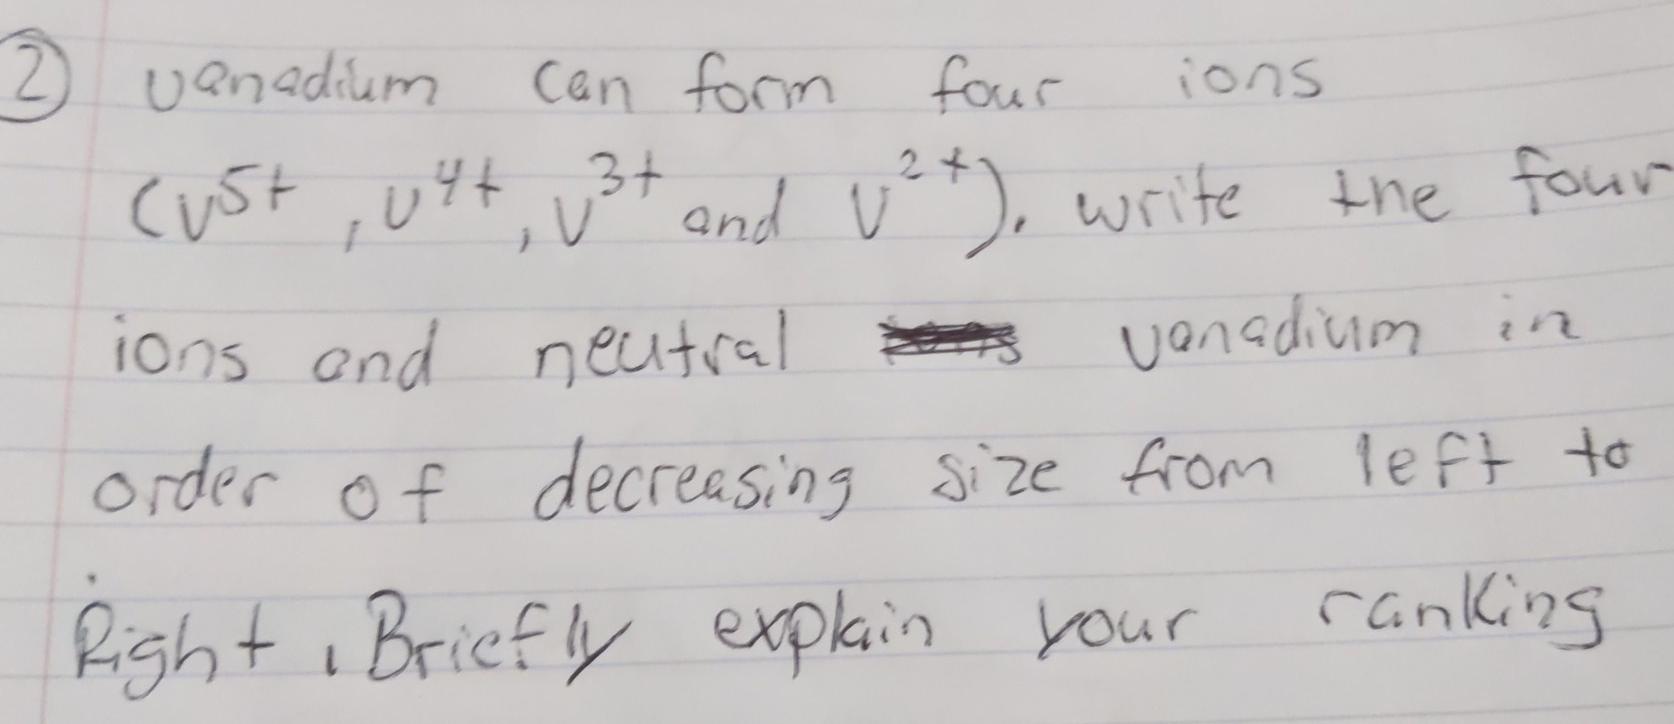 ② vanadium can form four ions
(V⁵⁺, V⁴⁺, V³⁺ and V²⁺). write the four
ions and neutral vanadium in
order of decreasing size from left to
Right, Briefly explain your ranking